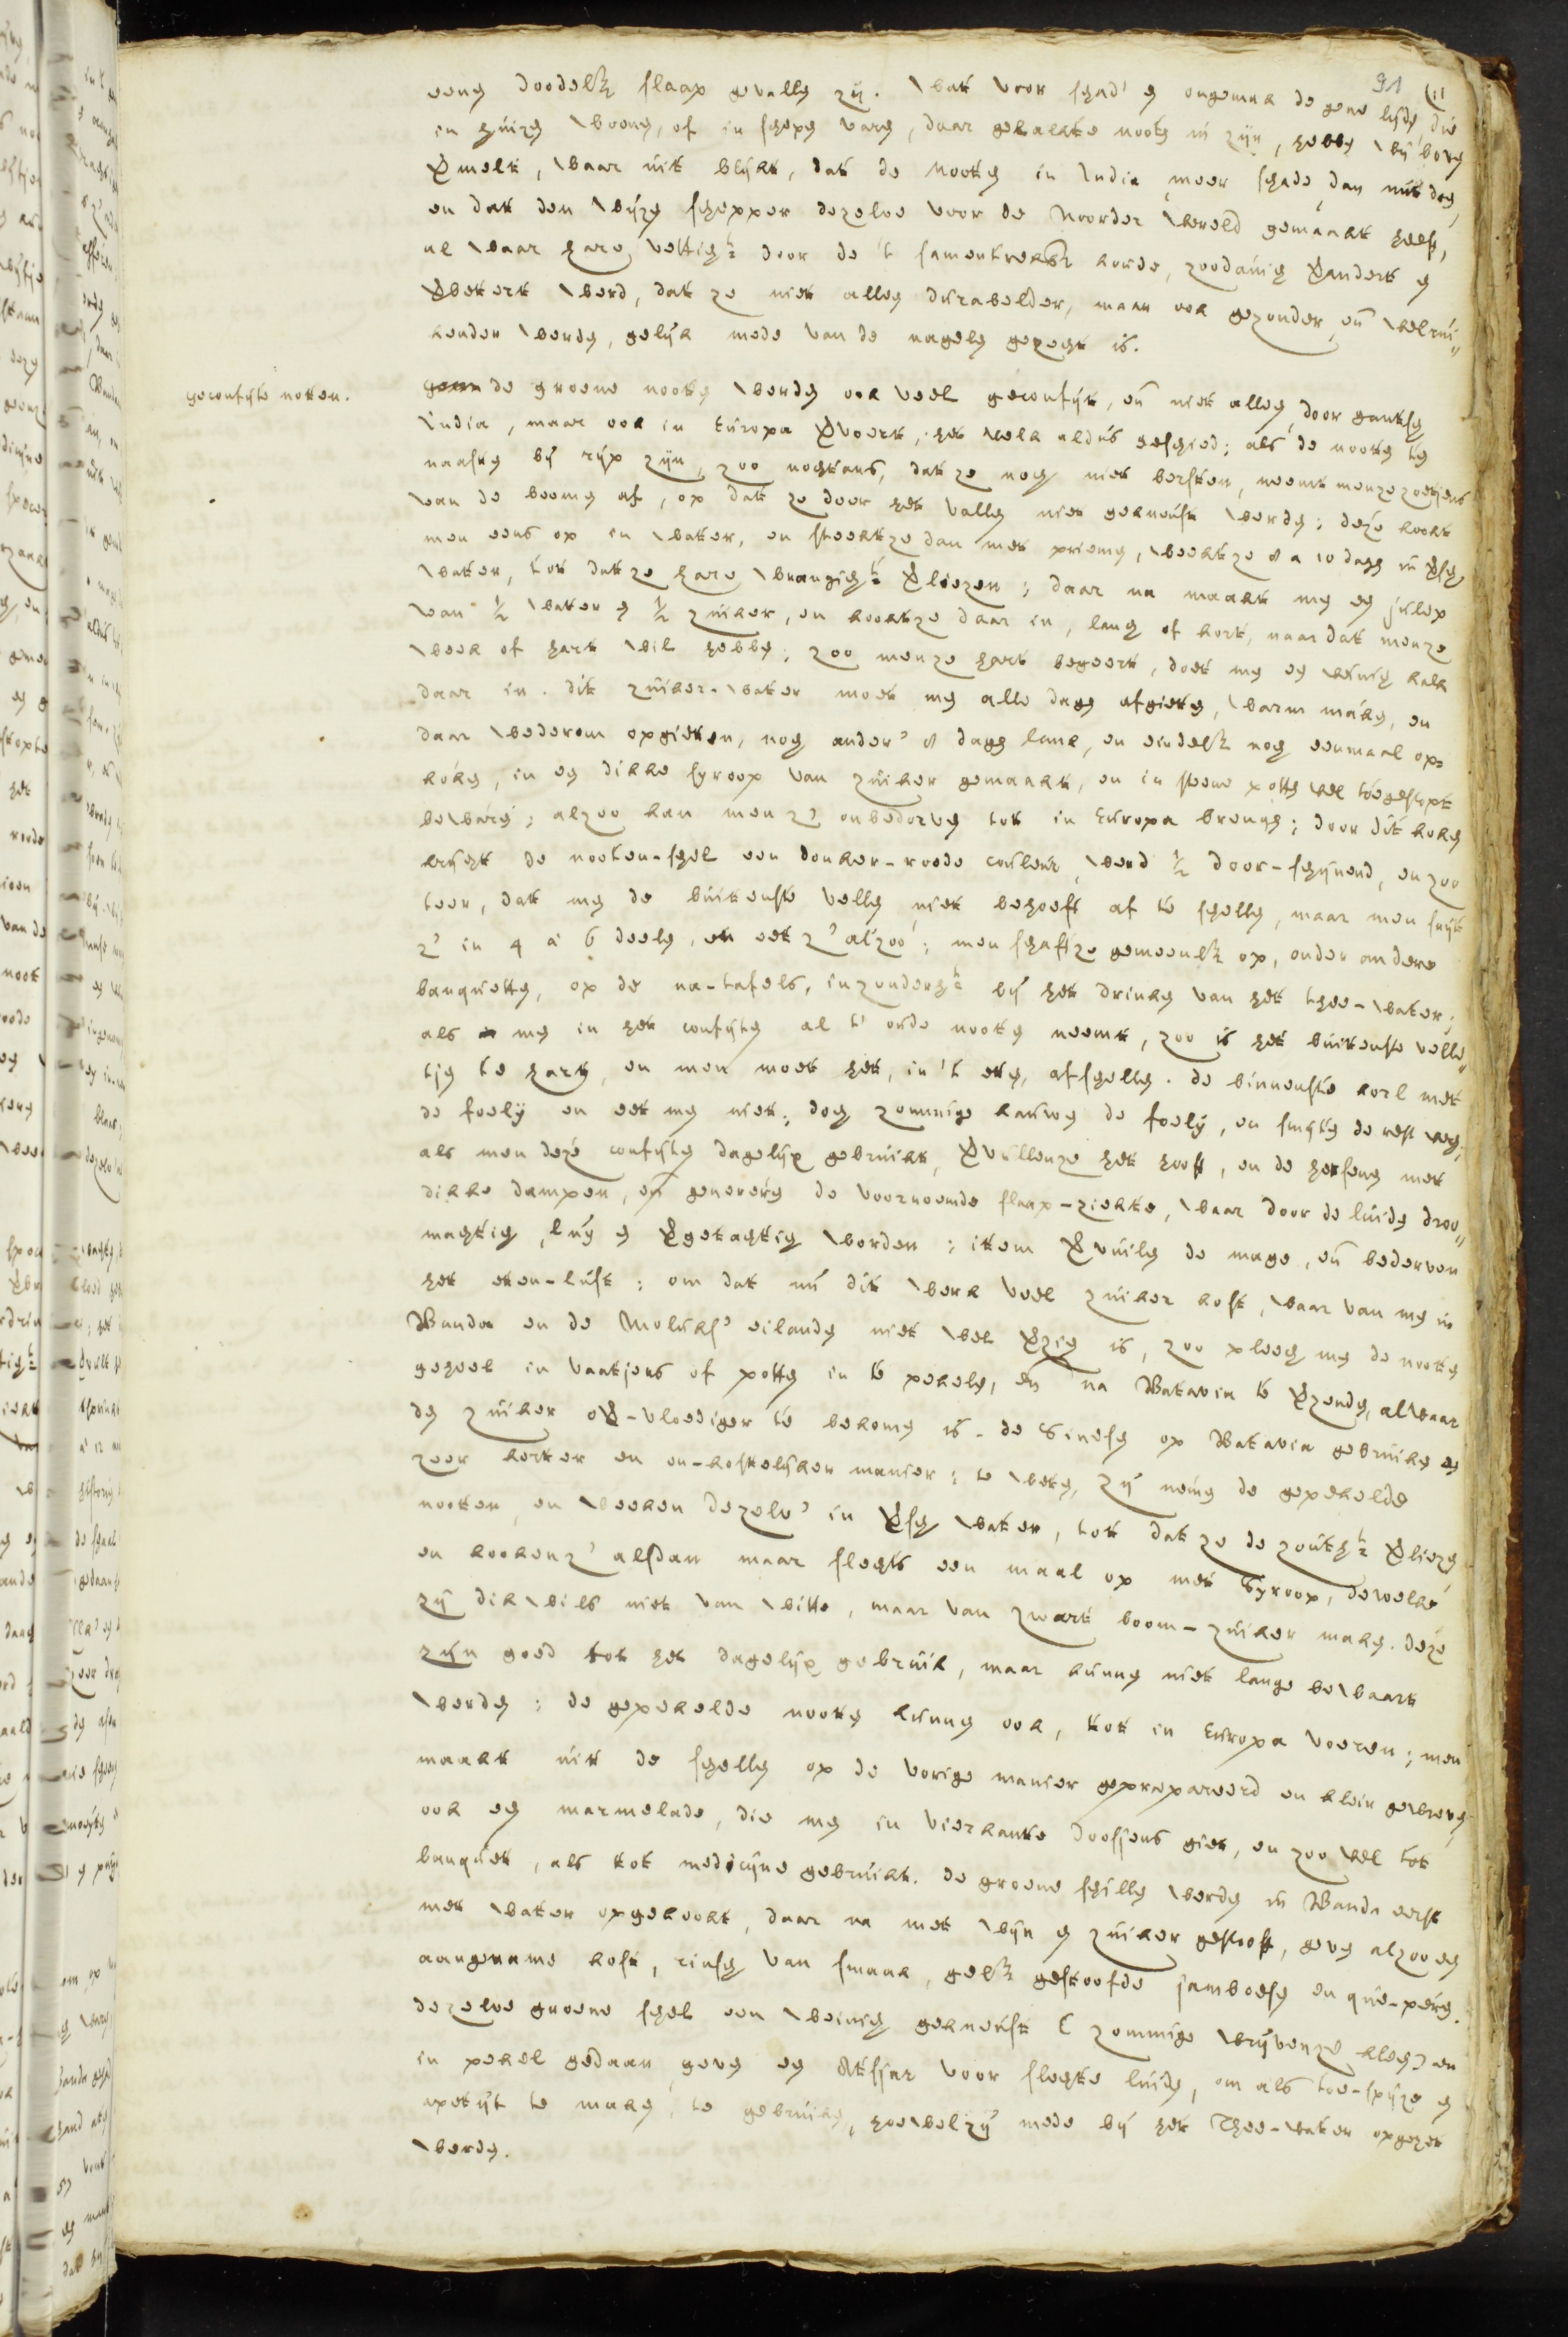 91
eenen doodelk slaap gevallen zij. Wat voor schad' en ongemak de gene lijden, die
in huizen woonen, of in schepen varen, daar gekalkte nooten in zijn, hebben wij boven
vermelt, waar uit blijkt, dat de Nooten in India meer schade, dan nut doen,
en dat den wijzen schepper dezelve voor de Noorder wereld gemaakt heeft,
al waar hare vettight door de t samentrekk koude, zoodanig verandert en
verbetert werd, dat ze niet alleen durabelder, maar ook gezonder, en welrui„
kender werden, gelijk mede van de nagelen gezegt is.
geconfijte notten.
de groene nooten werden ook veel geconfijt, en niet alleen door gantsch
India, maar ook in Europa vervoert, het welk aldus geschied; als de nooten ten
naasten bij rijp zijn, zoo nochtans, dat ze noch niet bersten, neemt menze zoetjens
van de boomen af, op dat ze door het vallen niet gekneust werden; deze kookt
men eens op in water, en steektze dan met priemen, weektze 8 a 10 dagen in versch
water, tot datze hare wrangight verliezen; daar na maakt men een julep
van ½ water en ½ zuiker, en kooktze daar in, lang of kort, naar dat menze
week of hart wil hebben; zoo menze hart begeert, doet men een weinig kalk
daar in. dit zuiker-water moet men alle dagen afgieten, warm maken, en
daar wederom opgieten, noch ander' 8 dagen lank, en eindelk noch eenmaal op=
koken, in een dikke syroop van zuiker gemaakt, en in steene potten wel toegestopt
bewaren; alzoo kan men z' onbedorven tot in Europa brengen; door dit koken
krijcht de nooten-schel een donker-roode couleur, werd ½ door-schijnend, en zoo
teer, dat men de buitenste vellen niet behoeft af te schellen, maar men snijt
z' in 4 à 6 deelen, en eet z' alzoo; men schaftze gemeenlk op, onder andere
banquetten, op de na-tafels, inzonderht bij het drinken van het thee-water;
als men in het confijten al t' oude nooten neemt, zoo is het buitenste velle„
tjen te hart, en men moet het, in 't eten, afschellen. de binnenste korl met
de foelij en eet men niet; doch zommige kauwen de foelij, en smijten de rest wech;
als men deze confijten dagelijx gebruikt, vervullenze het hooft, en de herssens met
dikke dampen, en genereren de voornoemde slaap-ziekte, waar door de luiden droo„
machtig, luy en vergetachtig worden; item vervuilen de mage, en bederven
het eten-lust; om dat nu dit werk veel zuiker kost, waar van men in
Banda en de Moluks' eilanden niet wel verzien is, zoo pleech men de nooten
geheel in vaatjens of potten in te pekelen, en na Batavia te verzenden, alwaar
den zuiker over-vloediger te bekomen is. de Sinesen op Batavia gebruiken een
zeer korter en on-kostelijker manier; te weten, zij nemen de gepekelde
nooten, en weeken dezelv' in versch water, tot dat ze de zoutht verliezen
en kookenz' alsdan maar slechts een maal op met Syroop, dewelke
zij dikwils niet van witte, maar van zwart boom-zuiker maken. deze
zijn goed tot het dagelijx gebruik, maar kunnen niet lange bewaart
werden; de gepekelde nooten kunnen ook, tot in Europa voeren; men
maakt uit de schellen op de vorige manier gepraepareerd en klein gewreven,
ook een marmelade, die men in vierkante doosjens giet, en zoo wel tot
banquet, als tot medicijne gebruikt. de groene schillen werden in Banda eerst
met water opgekookt, daar na met wijn en zuiker gestooft, geven alzoo een
aangename kost, rinsch van smaak, gelk gestoofde jamboesen en que-peren.
dezelve groene schel een weinig gekneust (zommige wrijvenze kleen) en
in pekel gedaan geven een Atsjar voor slechte luiden, om als toe-spijze en
apetijt te maken, te gebruiken, hoewelzij mede bij het Thee-water opgezet
werden.